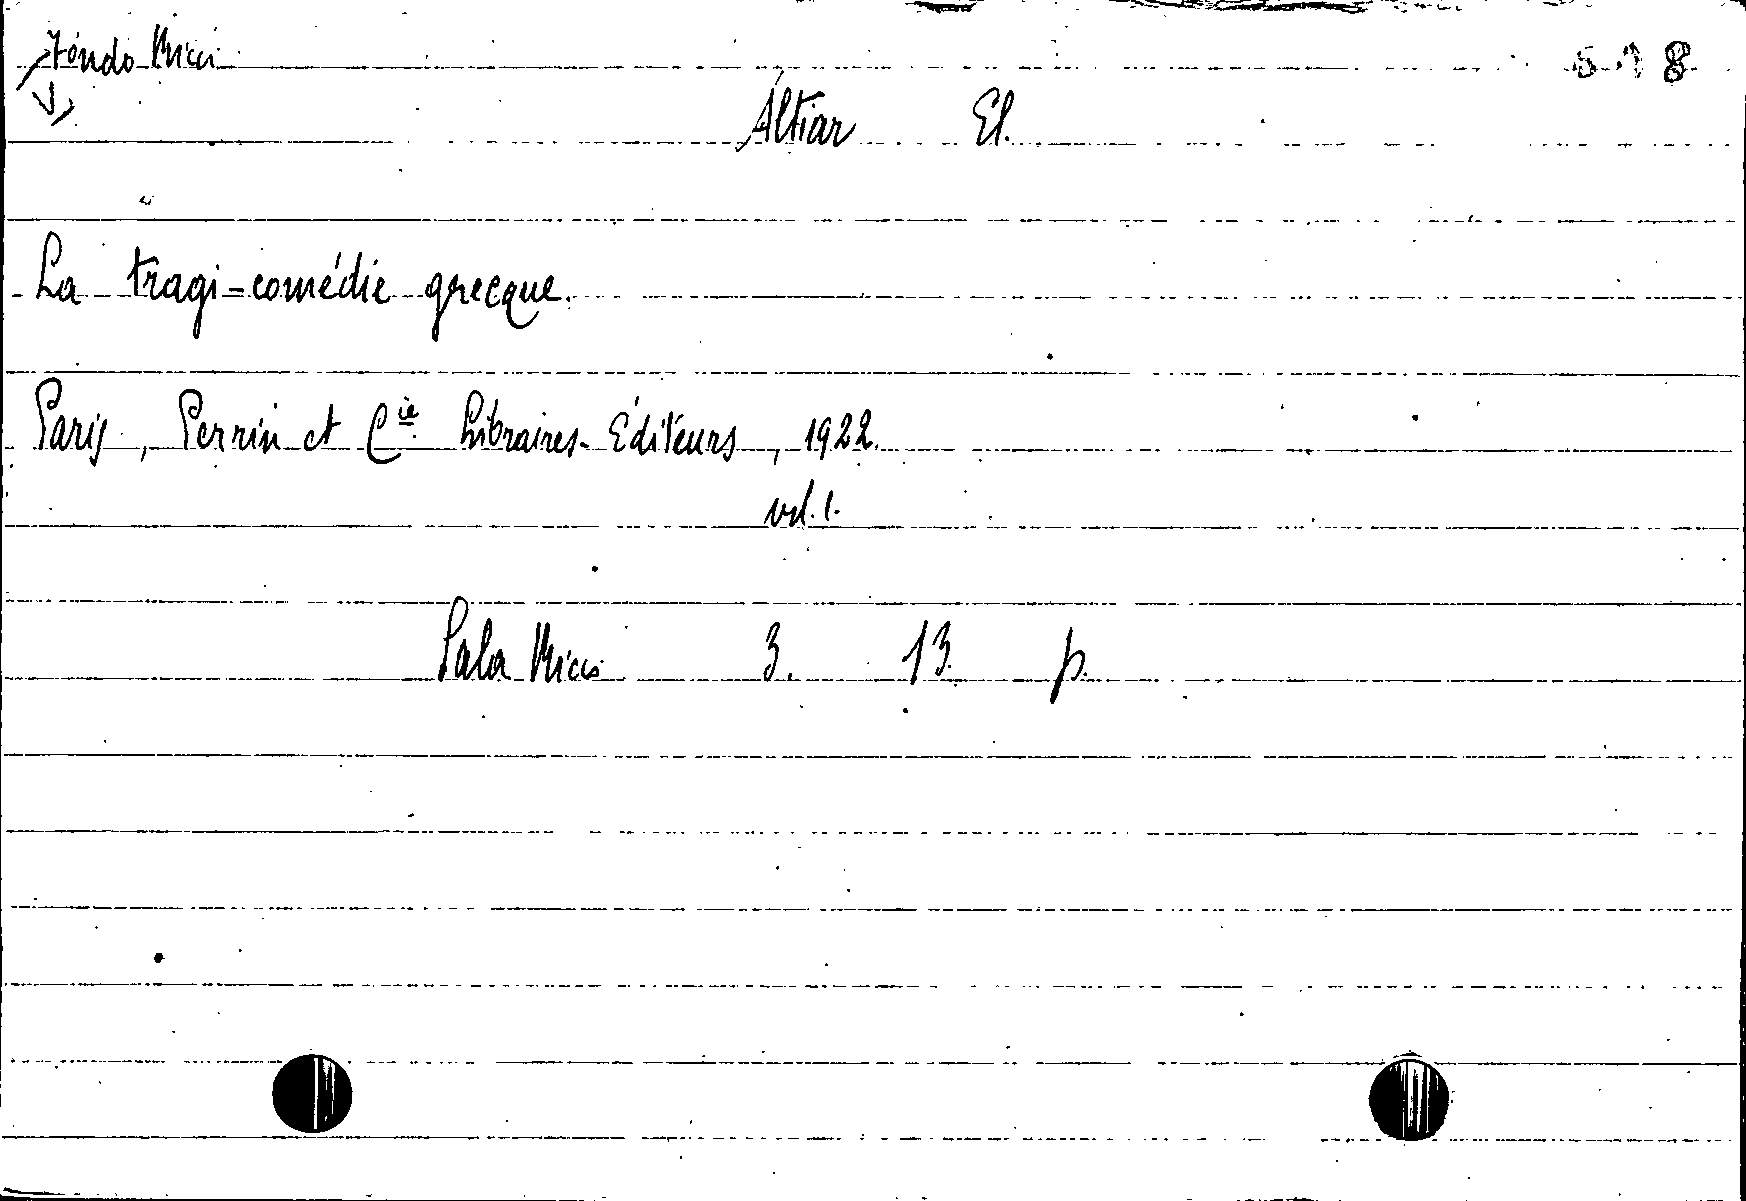 Fondo Ricci
518
Altiar El.
La tragi-comédie grecque.
Paris, Perrin et Cie Libraires-Éditeurs, 1922.
vol. 1.
Sala Ricci 3. 13. p.